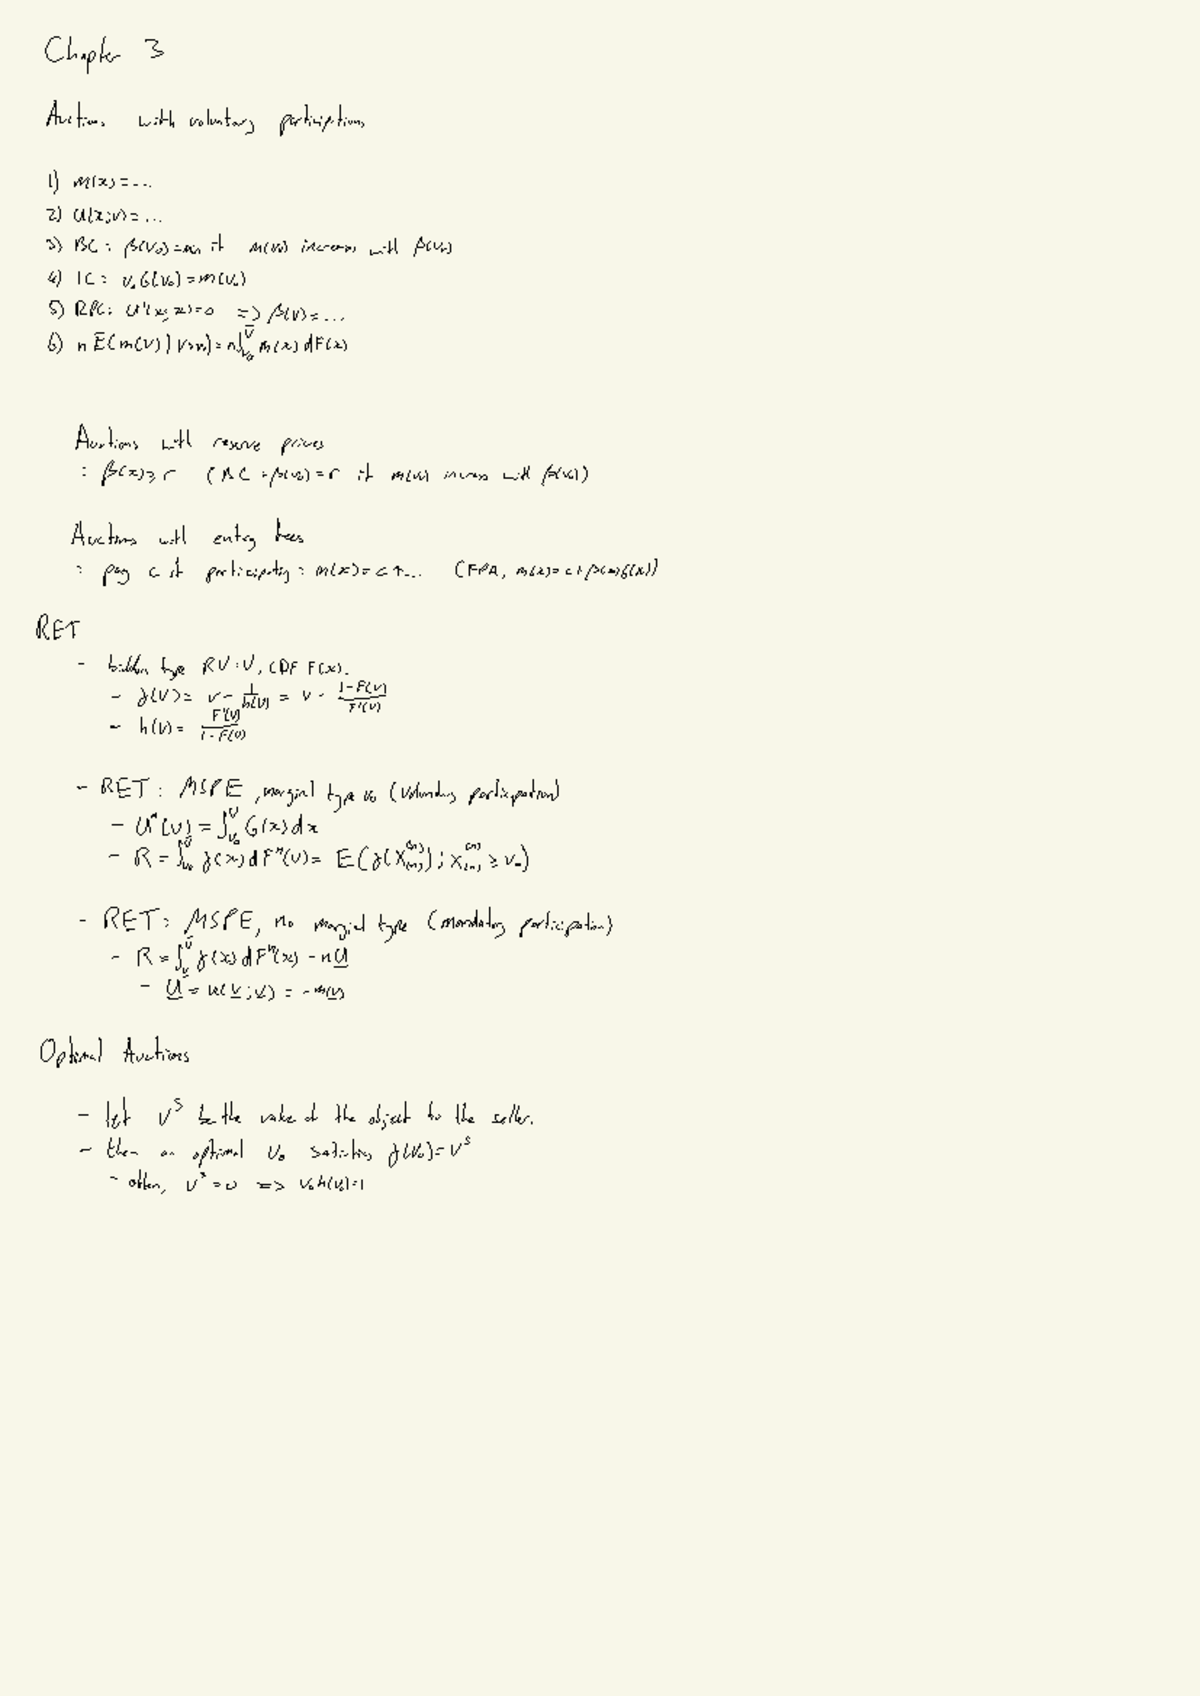 Chapter 3
Auctions with voluntary participations
1) m(x) = ...
2) U(x;v) = ...
3) BC : β(v₀) = if m(v₀) increases with β(v₀)
4) IC : v₀G(v₀) = m(v₀)
5) RPC: U'(x;x)=0 => β(v) = ...
6) n E(m(V) | V>v₀) = n∫_{v₀}^{v̄} m(x) dF(x)
Auctions with reserve prices
: β(x) ≥ r (BC : β(v₀) = r if m(v₀) increases with β(v₀))
Auctions with entry fees
: pay c if participating : m(x) = c + ... (FPA, m(x) = c + β(x)G(x))
RET
- bidders type RV : V, CDF F(x).
- γ(v) = v - 1/h(v) = v - (1-F(v))/F'(v)
- h(v) = F'(v)/(1-F(v))
- RET : MSPE, marginal type v₀ (voluntary participation)
- U*(v) = ∫_{v₀}^{v} G(x) dx
- R = ∫_{v₀}^{v̄} γ(x) dFⁿ(v) = E(γ(X_{(n)}^{(n)}) ; X_{(n)}^{(n)} ≥ v₀)
- RET : MSPE, no marginal type (mandatory participation)
- R = ∫_{v̲}^{v̄} γ(x) dFⁿ(x) - nU̲
- U̲ = u(v̲;v̲) = -m(v̲)
Optimal Auctions
- let vˢ be the value of the object to the seller.
- then an optimal v₀ satisfies γ(v₀) = vˢ
- often, vˢ = 0 => v₀h(v₀)=1